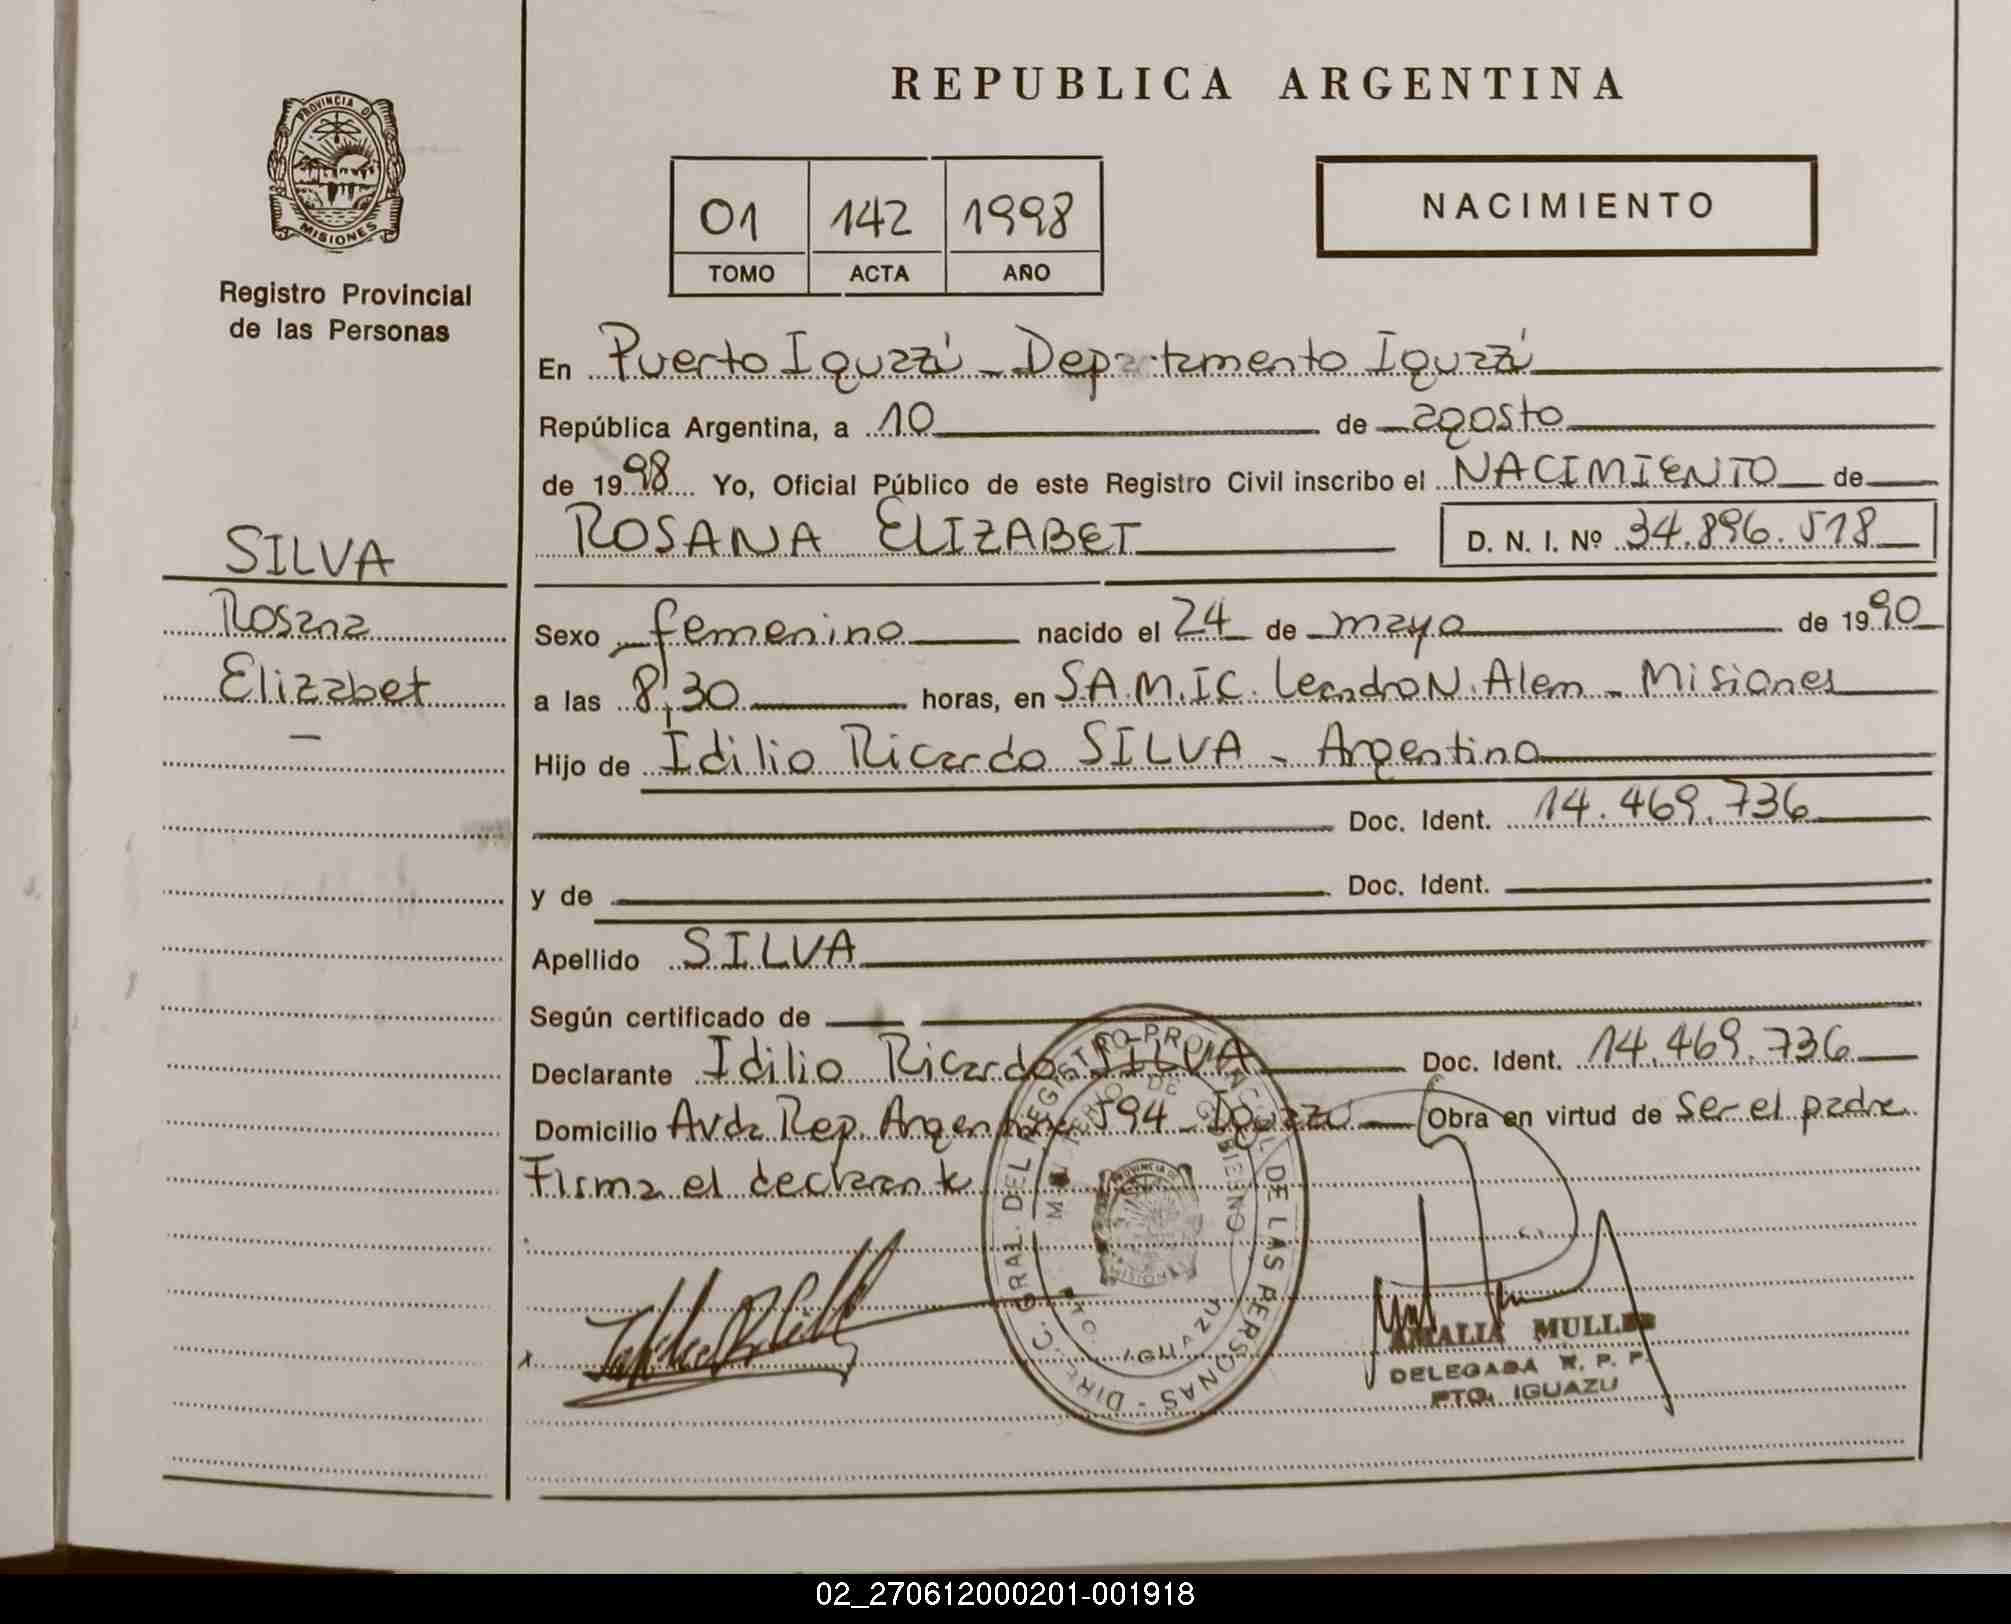 REPUBLICA ARGENTINA
PROVINCIA DE
MISIONES
Registro Provincial
de las Personas
01 142 1998
TOMO ACTA AÑO
NACIMIENTO
SILVA
Rosana
Elizabet
—
En Puerto Iguazú - Departamento Iguazú
República Argentina, a 10 de agosto
de 1998 Yo, Oficial Público de este Registro Civil inscribo el NACIMIENTO de
ROSANA ELIZABET D. N. I. Nº 34.896.518
Sexo femenino nacido el 24 de mayo de 1990
a las 8,30 horas, en S.A.M.I.C. Leandro N. Alem - Misiones
Hijo de Idilio Ricardo SILVA - Argentino
Doc. Ident. 14.469.736
y de Doc. Ident.
Apellido SILVA
Según certificado de
Declarante Idilio Ricardo SILVA Doc. Ident. 14.469.736
Domicilio Avda Rep. Argentina 594 - Iguazú Obra en virtud de ser el padre
Firma el declarante
DIREC. GRAL. DEL REGISTRO PROVINCIAL DE LAS PERSONAS
MINISTERIO DE GOBIERNO
PTO. IGUAZU
PROVINCIA DE
MISIONES
AMALIA MULLER
DELEGADA R. P. P.
PTO. IGUAZU
02_270612000201-001918